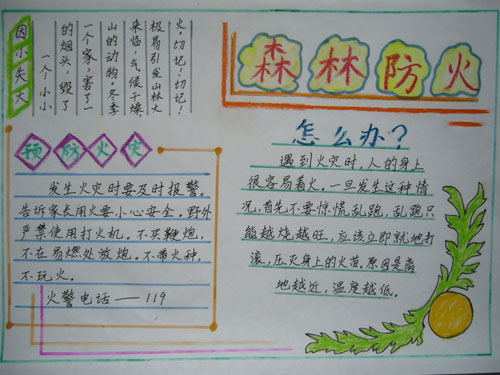 因小失大
一个小小
的烟头，毁了
一个家，害了一
山的动物。冬季
来临，气候干燥
极易引发山林大
火。切记！切记！
森林防火
预防火灾
发生火灾时要及时报警。
告诉家长用火要小心安全。野外
严禁使用打火机。不买鞭炮，
不在易燃处放炮。不带火种，
不玩火。
火警电话——119
怎么办？
遇到火灾时，人的身上
很容易着火，一旦发生这种情
况，首先不要惊慌乱跑，乱跑只
能越烧越旺，应该立即就地打
滚，压灭身上的火苗。原因是离
地越近，温度越低。